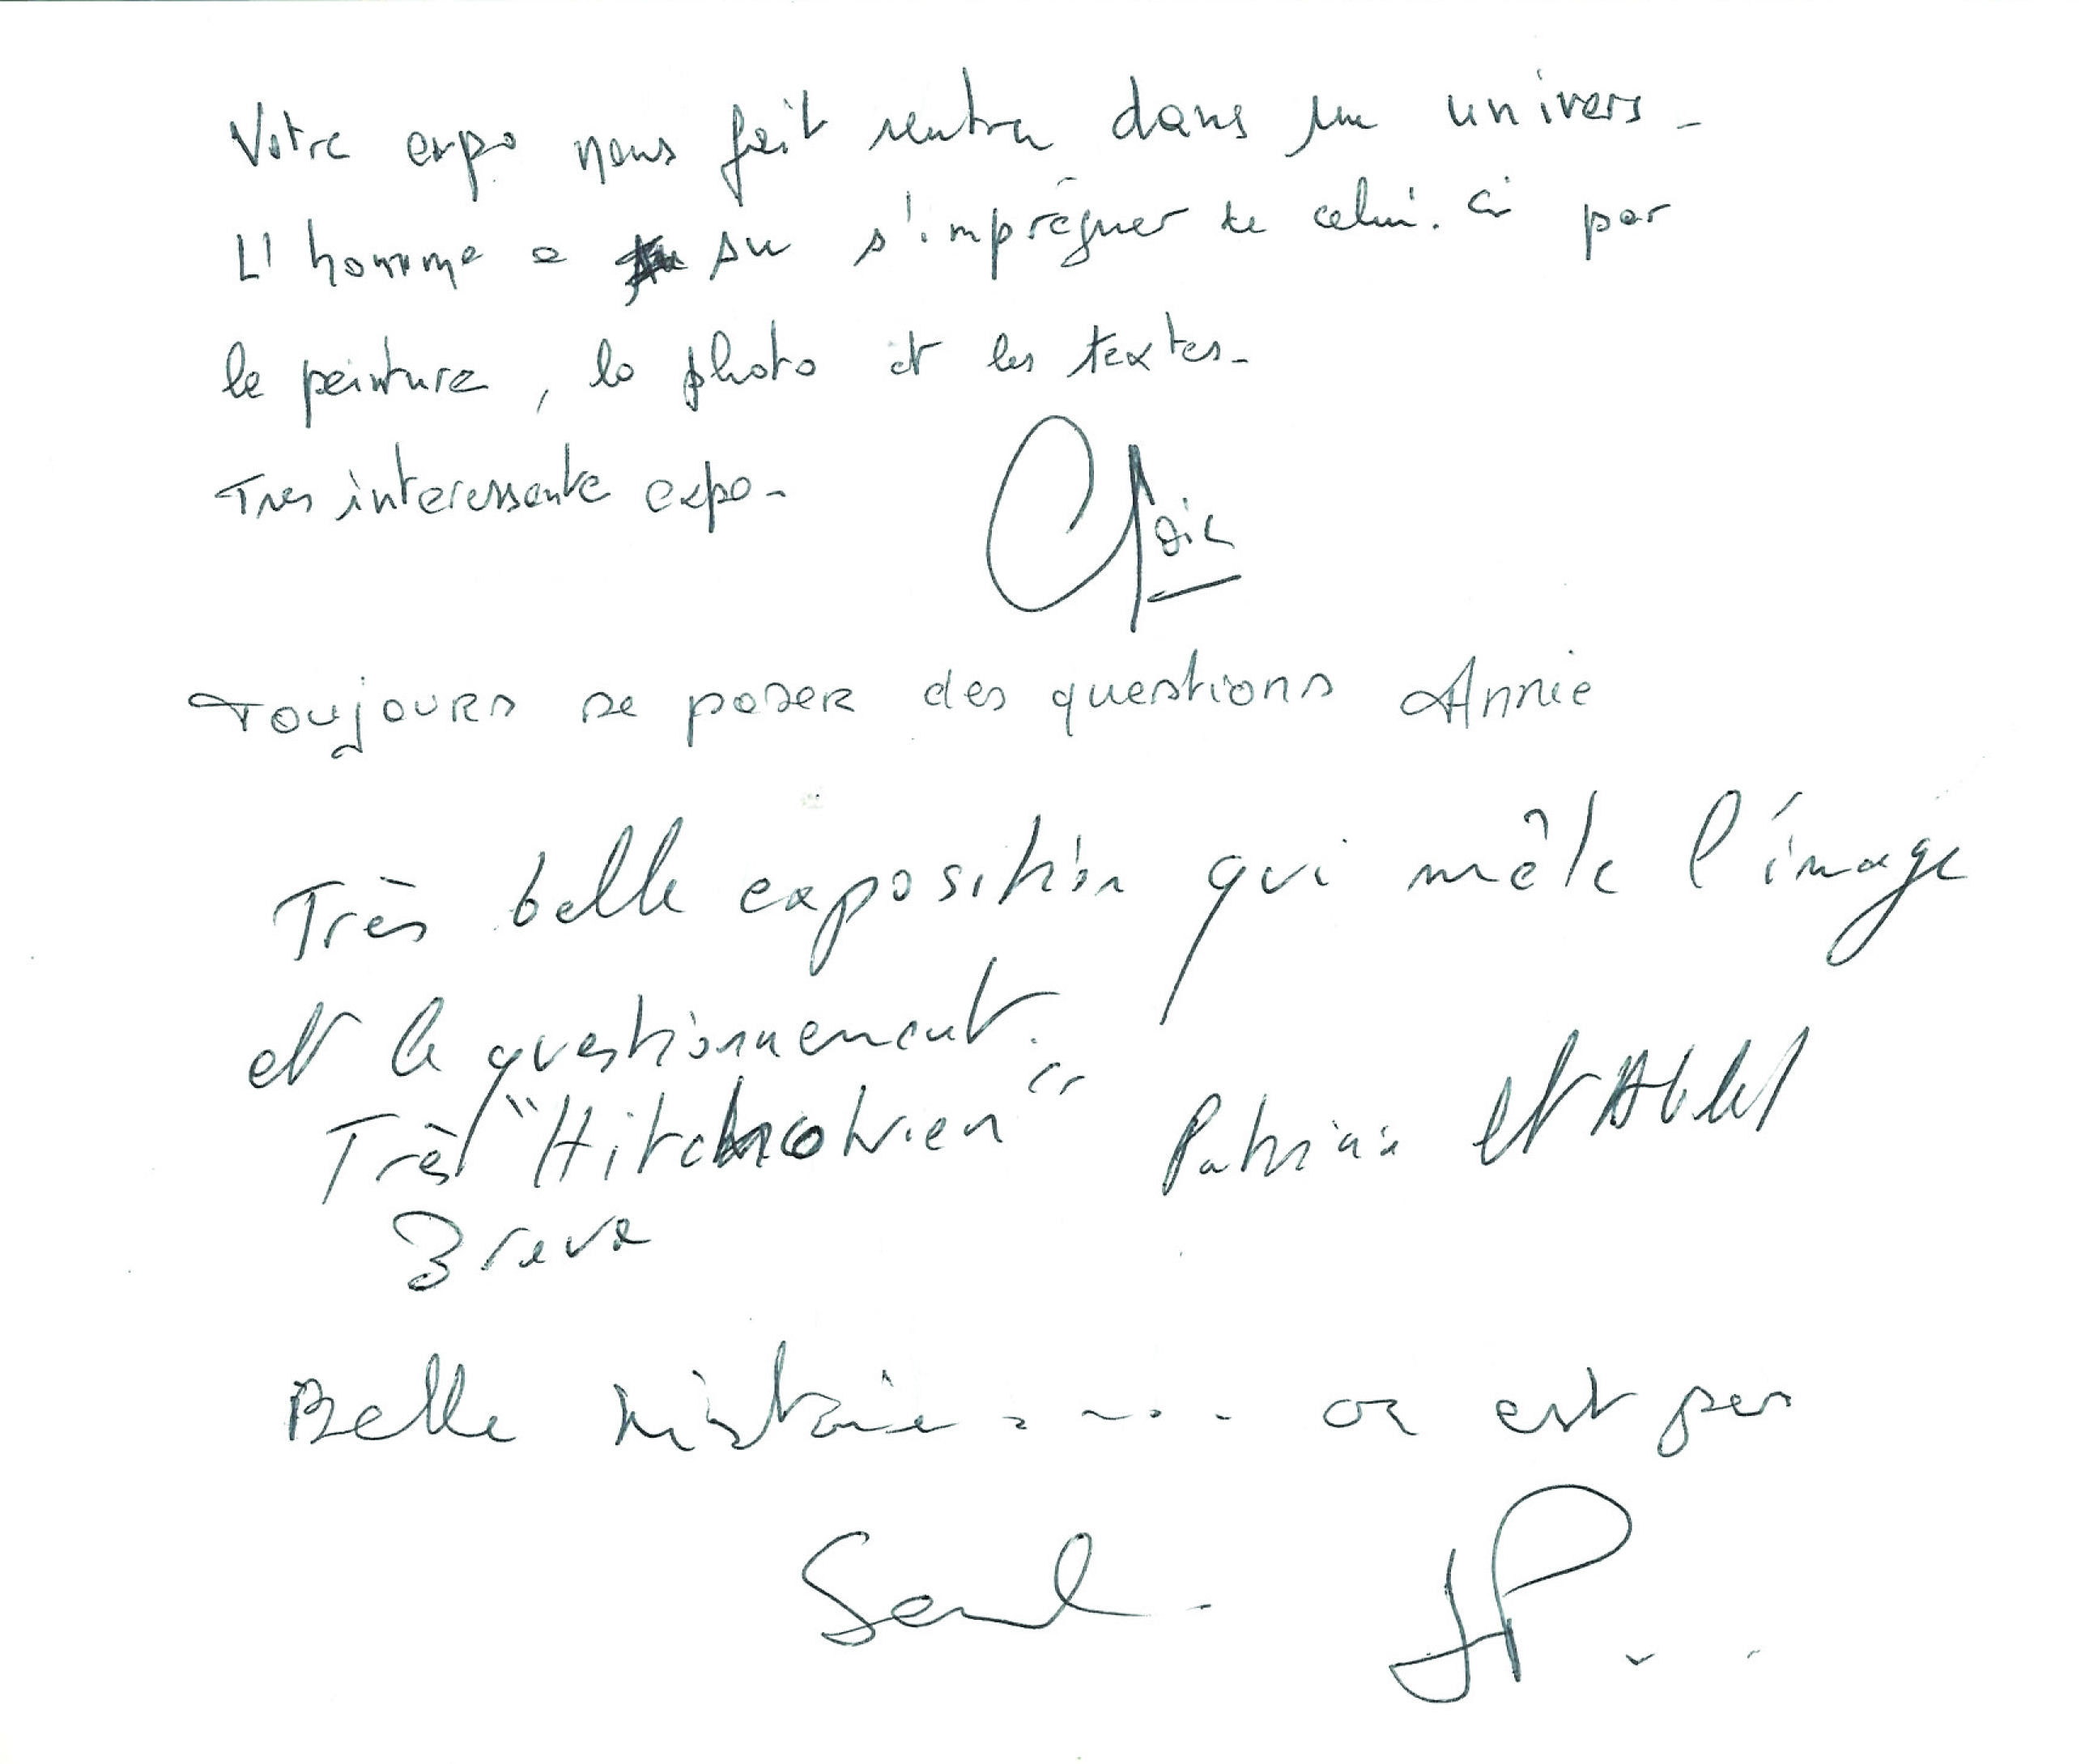 Votre expo nous fait rentrer dans un univers -
L'homme a su s'imprégner de celui-ci par
la peinture, la photo et les textes -
Tres interessante expo -
Toujours se poser des questions Annie
Très belle exposition qui mêle l'image
et le questionnement.
Très "Hitchcokien" Patricia et
Bravo
Belle histoire .... on est pas
Seul - JP...